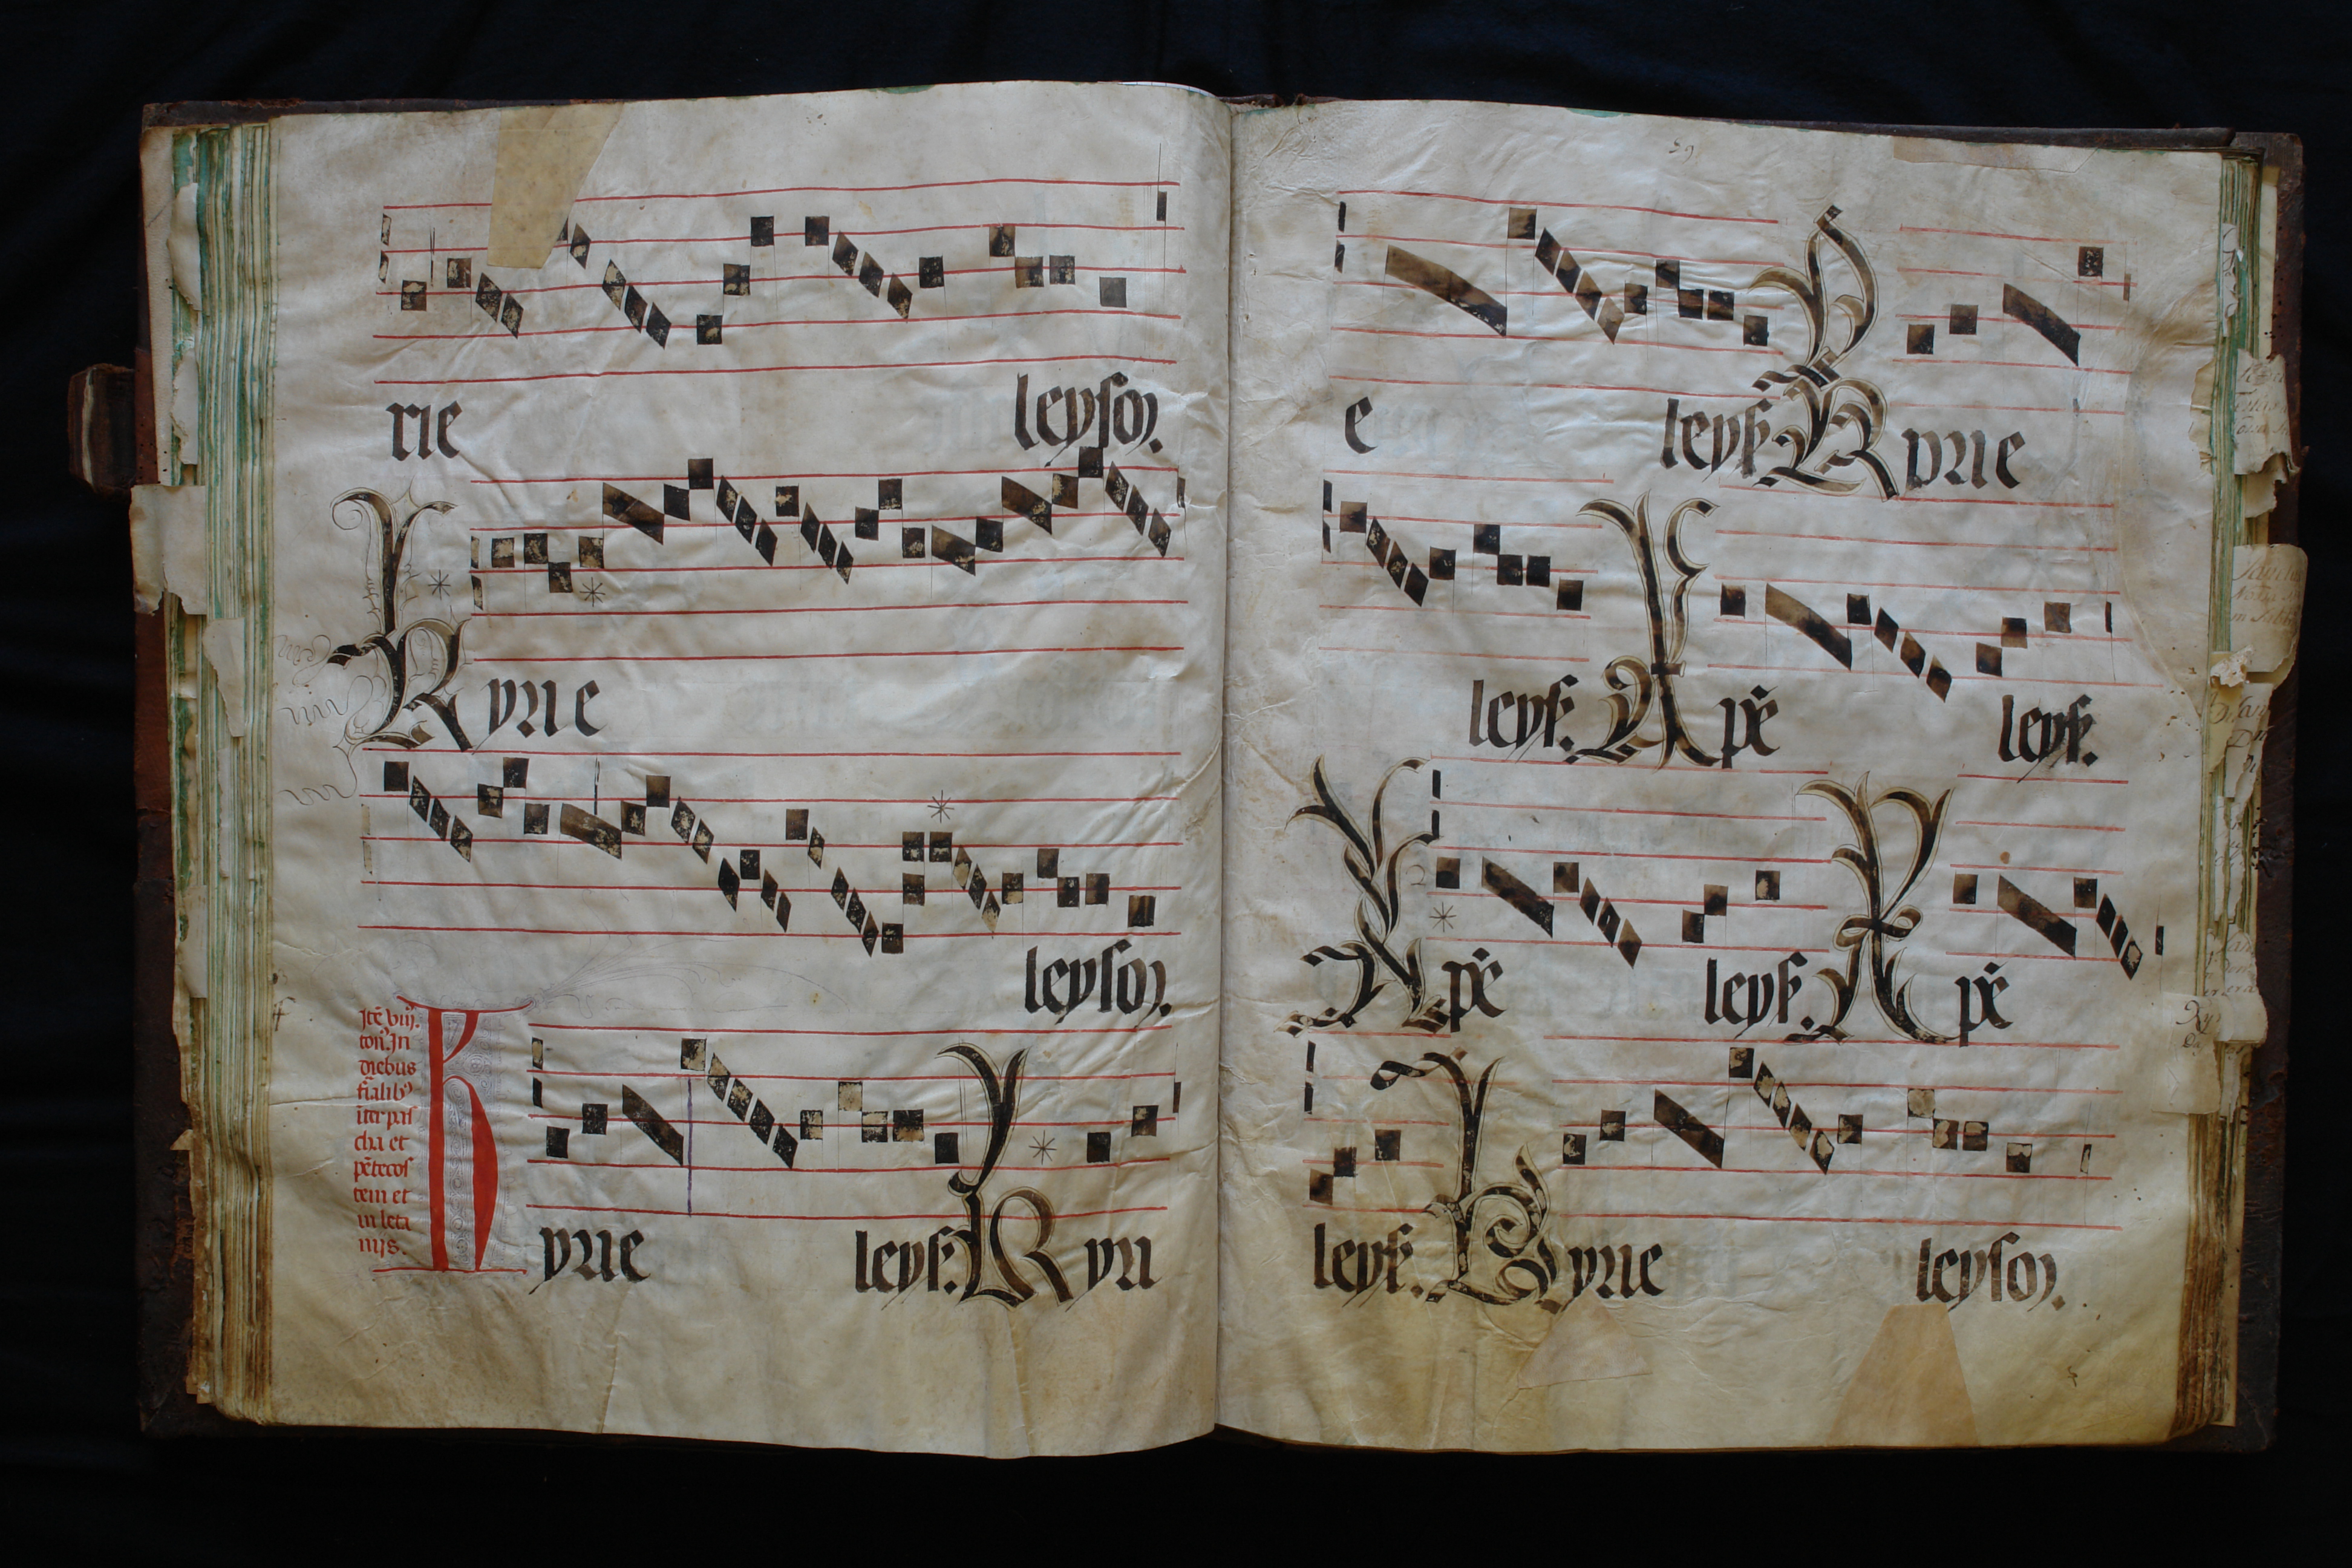 rie leyson.
Kyrie
leyson.
Itē viij.
ton. In
diebus
fialib9
iter pas
cha et
pētecos
tem et
in leta
nijs.
Kyrie leys. Kyri
59
e leys. Kyrie
leys. Xpē leys.
Xpē leys. Xpē
leys. Kyrie leyson.